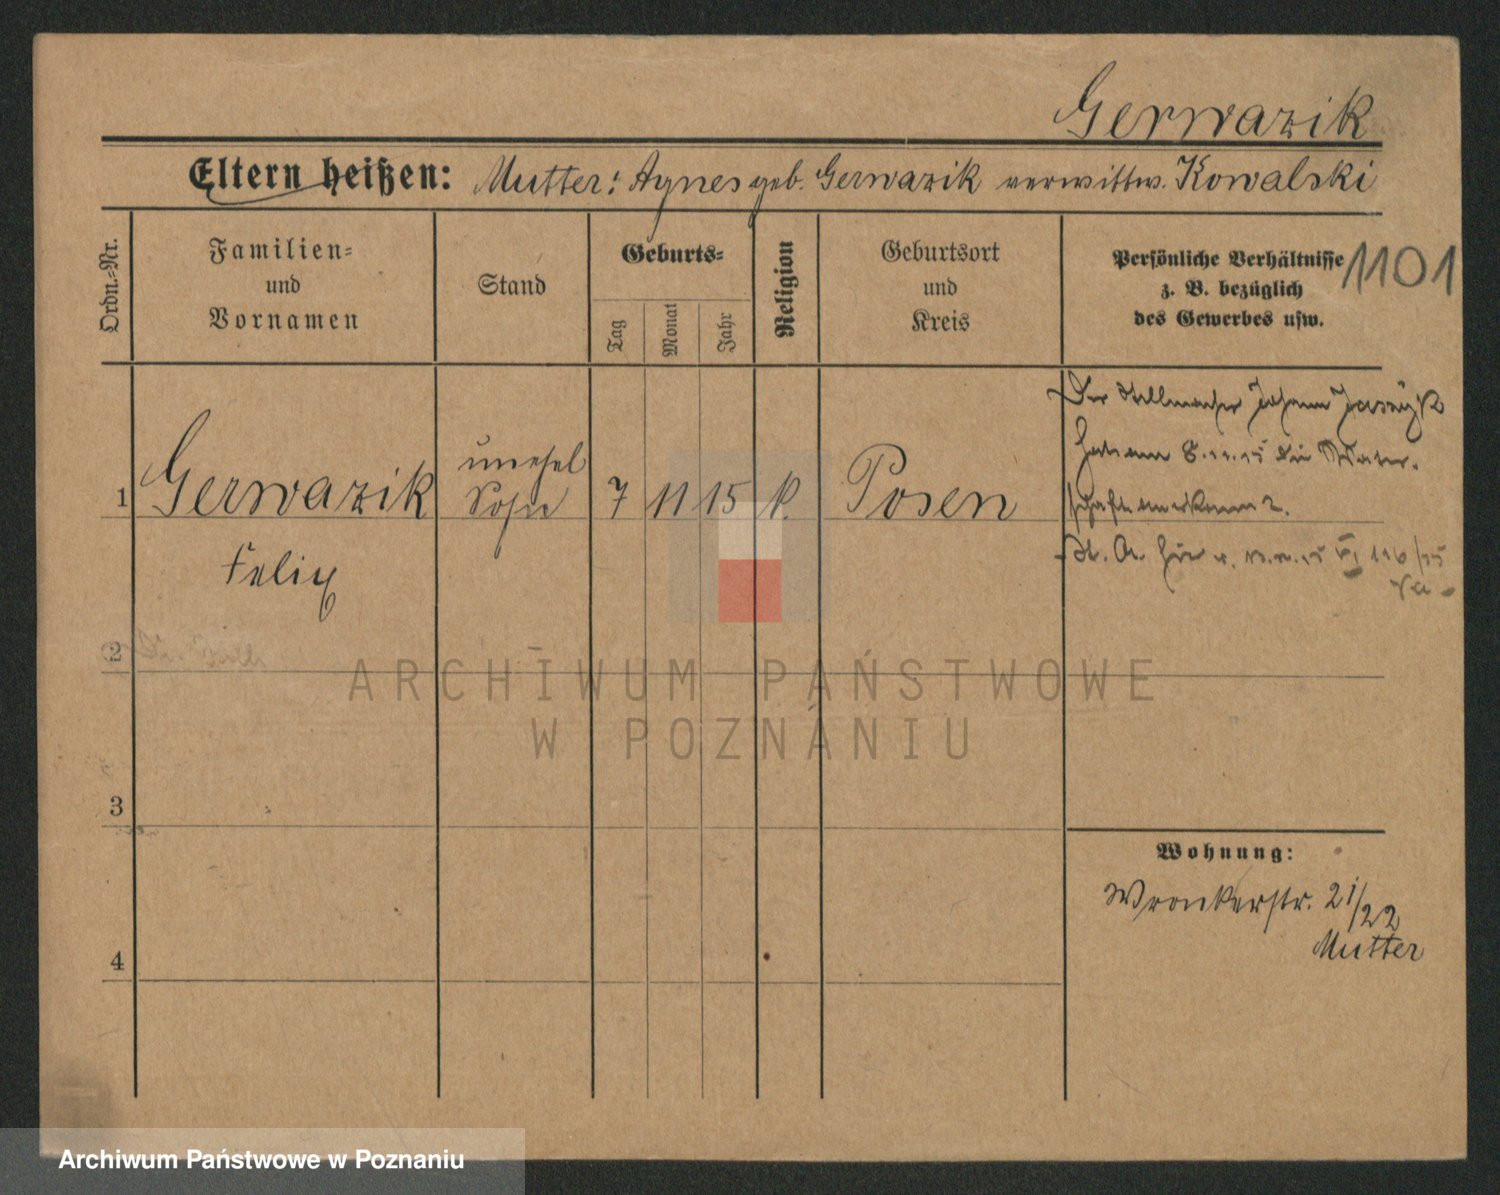 Gerwazik
Eltern heißen: Mutter: Agnes geb. Gerwazik verwittw. Kowalski
Ordn.-Nr.
Familien-
und
Vornamen
Stand
Geburts-
Tag
Monat
Jahr
Religion
Geburtsort
und
Kreis
Persönliche Verhältnisse
z. B. bezüglich
des Gewerbes usw.
1101
1 Gerwazik
Felix
unehel
Sohn
7 11 15 k. Posen
Der Stellmacher Johann
hat am 8.11.15 die Vater-
schaft anerkannt.
St. A. hier v.
2
3
4
Wohnung:
Wronkerstr. 21/22
Mutter
ARCHIWUM PAŃSTWOWE
W POZNANIU
Archiwum Państwowe w Poznaniu